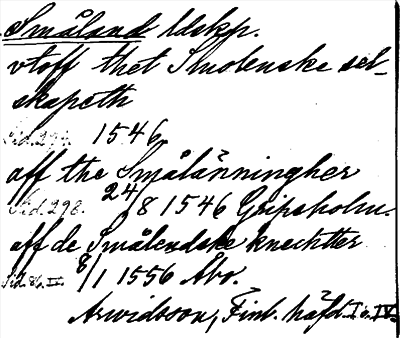 Småland ldskp.
vtoff thet Smolenske sel-
skapeth
Sid. 294. 1546
aff the Smålänningher
Sid. 298. 24/8 1546 Gripsholm.
aff de Smålendske knechtter
Sid. 86. IV. 8/1 1556 Åbo.
Arwidsson, Finl. häfd. I o. IV.